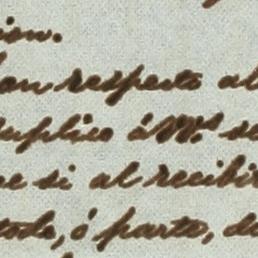 ion.
on respecto al
suplico á V. se
e si al recibir
todo, ó parte, de